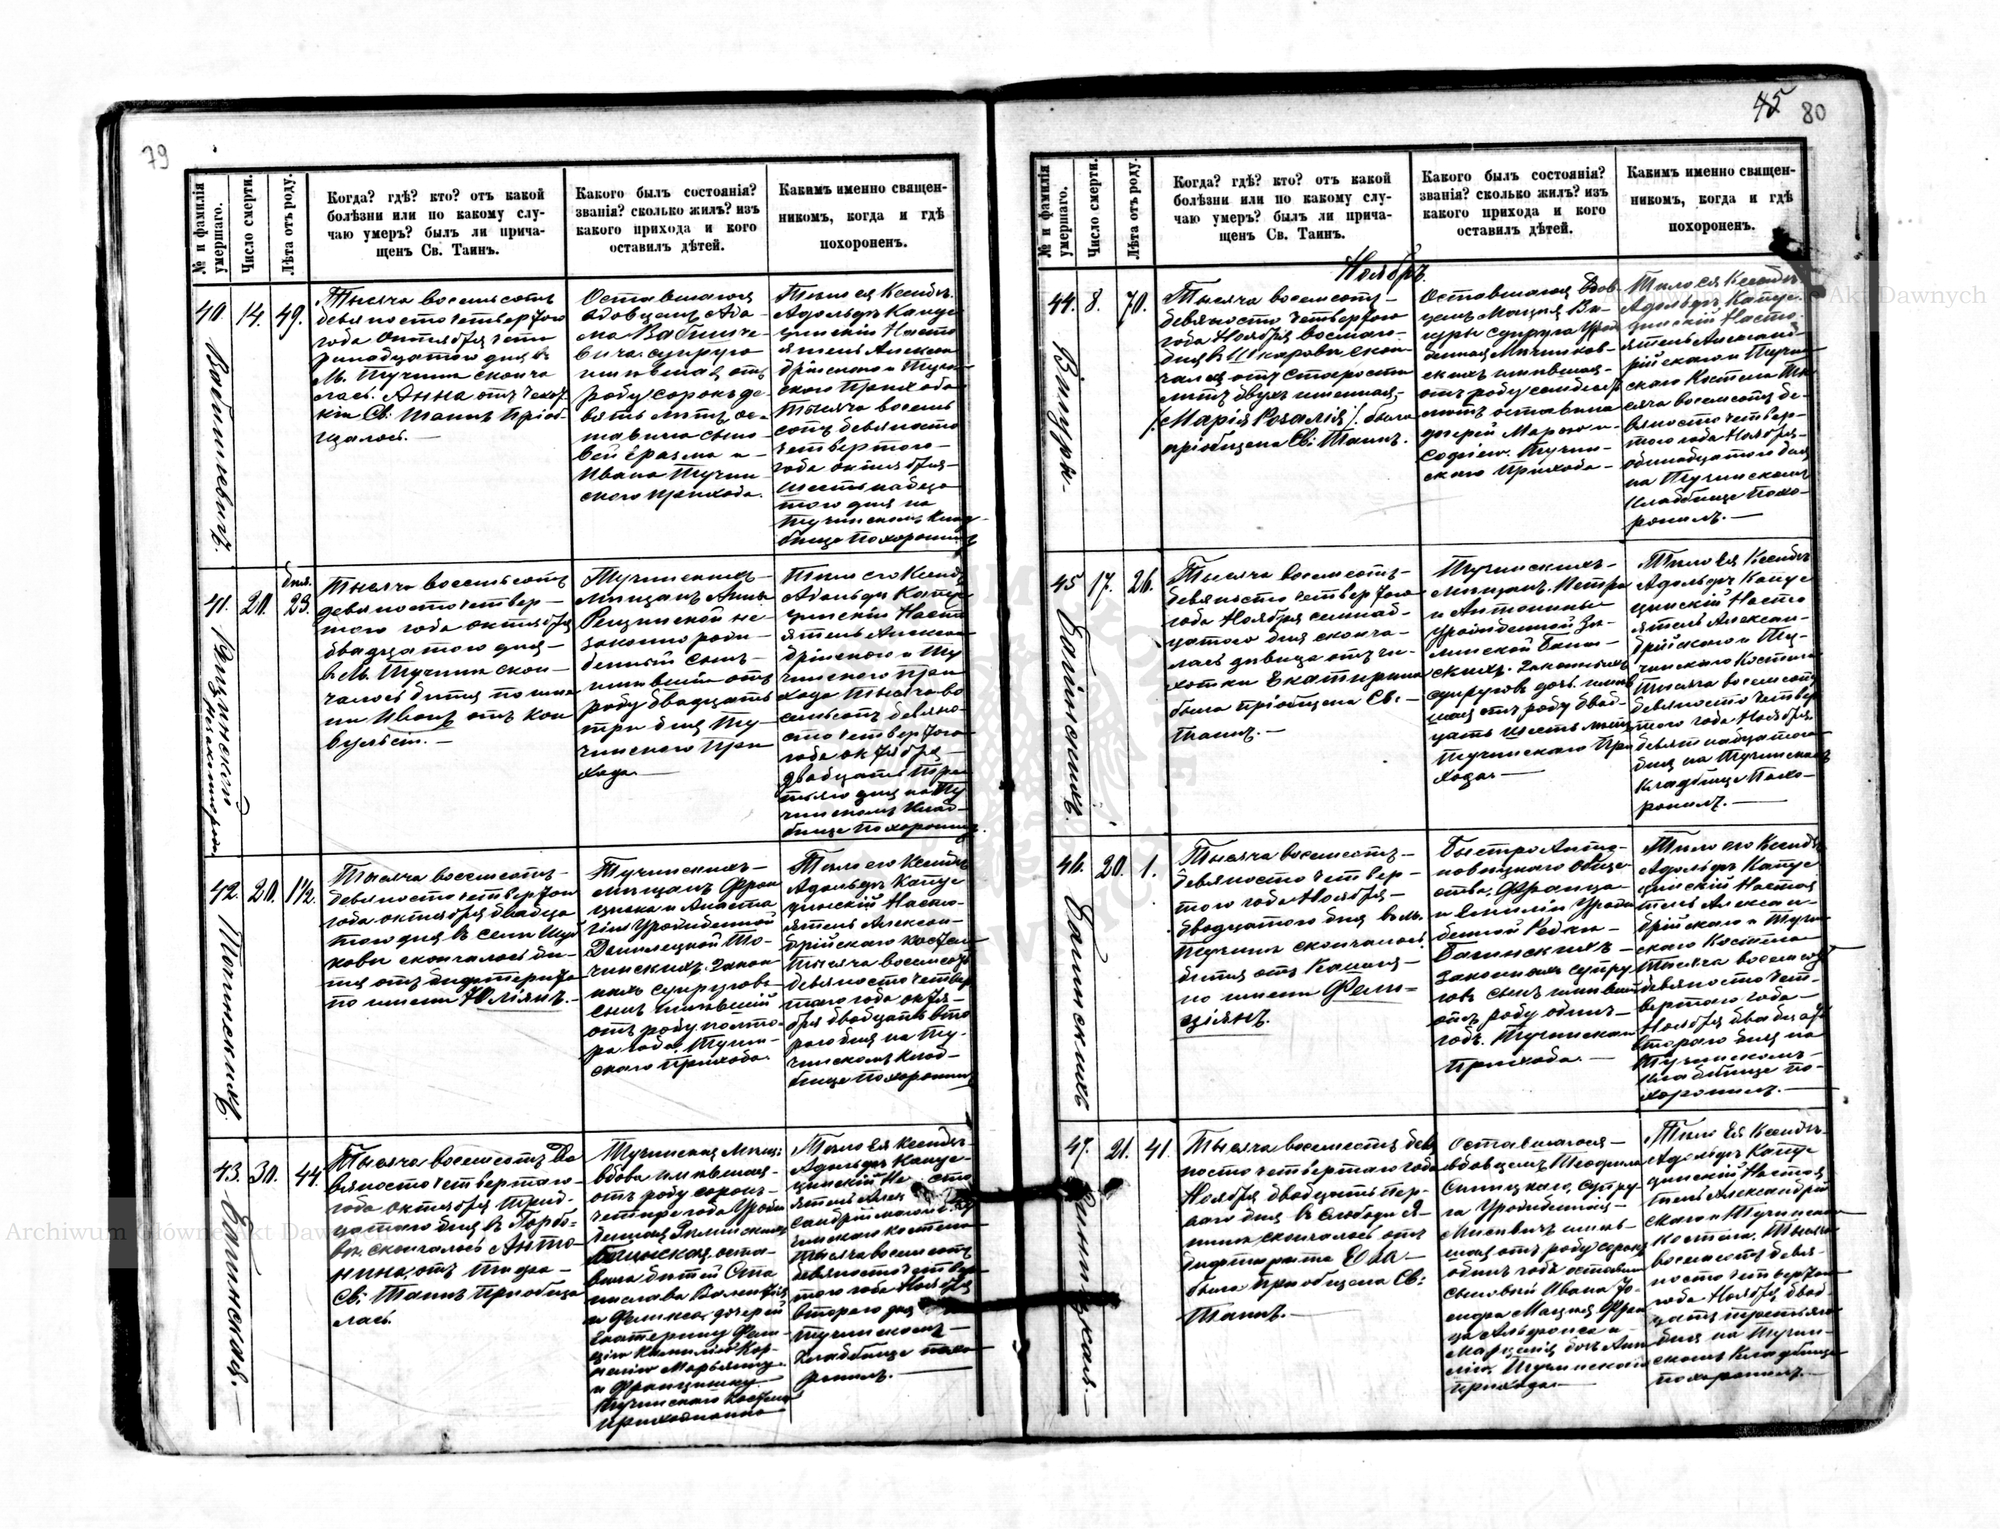 79
№ и фамилія умершаго.
Число смерти.
Лѣта отъ роду.
Когда? гдѣ? кто? отъ какой
болѣзни или по какому слу-
чаю умеръ? былъ ли прича-
щенъ Св. Таинъ.
Какого былъ состоянія?
званія? сколько жилъ? изъ
какого прихода и кого
оставилъ дѣтей.
Какимъ именно священ-
никомъ, когда и гдѣ
похороненъ.
40.
14.
49.
Тысяча восемьсотъ
девяносто четвертого
года Октября четы
рнадцатого дня въ
М. Тучинъ сконча
лась Анна отъ чахот
ки Св. Таинъ пріоб
щалась.—
Оставшагося
вдовцомъ Ада
ма
супруга
жившая отъ
роду сорокъ де
вять лѣтъ, ос
тавила сыно
вей Еразма и
Ивана Тучин
ского прихода.
Тѣло ея Ксендзъ
Адольфъ Капу
цинскій Насто
ятель Алексан
дрійского и Тучин
ского Прихода
тысяча восемь
сотъ девяносто
четвертого
года октября
шестнадца
того дня на
Тучинскомъ клад
бище похоронилъ
41.
20.
дня.
23.
Тысяча восемьсотъ
девяносто четвер—
того года октября
двадцатого дня—
въ М. Тучинъ скон—
чалось дитя по име
ни Иванъ отъ кон
вульсіи.—
Тучинскихъ—
мѣщанъ Анны
не
законно рож—
денный сынъ—
жившій отъ
роду двадцать
три дня Ту—
чинского При
хода.—
Тѣло его Ксендзъ
Адольфъ Капу
цинскій Насто
ятель Алексан
дрійского и Ту
чинского При
хода тысяча во
семьсотъ девяно
сто четвертого
года октября—
двадцать тре
тьяго дня на Ту
чинскомъ клад
бище похоронилъ.
42.
20.
1½.
Тысяча восемьсотъ—
девяносто четвертого
года октября двадца
того дня въ селѣ
скончалось ди—
тя отъ дифтерита
по имени Юліянъ.—
Тучинскихъ—
мѣщанъ Фран
циска и Анаста
зіи урожденной
закон
ныхъ супруговъ
сынъ жившій
отъ роду полто—
ра года. Тучин—
ского прихода.
Тѣло его Ксендзъ
Адольфъ Капу
цинскій Насто—
ятель Алексан—
дрійского костела
тысяча восемьсотъ
девяносто четвер
того года октя—
бря двадцать вто
рого дня на Ту—
чинскомъ клад—
бище похоронилъ
43.
30.
44.
Багинская.—
Тысяча восемьсотъ де
вяносто четвертого—
года октября трид—
цатого дня въ Горбо—
вѣ скончалась Анто—
нина, отъ тифа—
Св: Таинъ пріобща
лась.
Тучинская мѣщ:
вдова жившая—
отъ роду сорокъ—
четыре года урож
денная
Багинская, оста—
вила дѣтей Ста
нислава
и Феликса, дочерей
Екатерину Фели
цію Камилію Кор
нелію Марьянну
и Францишку.—
Тучинского костела
прихожанка—
Тѣло ея Ксендзъ—
Адольфъ Капу—
цинскій На сто
ятель Алек
сандрійского и Ту
чинского костела
тысяча восемьсотъ
девяносто четвер
того года Ноября
второго дня
Тучинскомъ—
кладбище похо
ронилъ.—
45
80
№ и фамилія умершаго.
Число смерти.
Лѣта отъ роду.
Когда? гдѣ? кто? отъ какой
болѣзни или по какому слу-
чаю умеръ? былъ ли прича-
щенъ Св. Таинъ.
Какого былъ состоянія?
званія? сколько жилъ? изъ
какого прихода и кого
оставилъ дѣтей.
Какимъ именно священ-
никомъ, когда и гдѣ
похороненъ.
Ноябрь.
44.
8.
70.
Тысяча восемьсотъ—
девяносто четвертого
года Ноября восьмого
дня въ скон
чалась отъ старости
лѣтъ двухъ именная
/Марія Розалія/. была
пріобщена Св: Таинъ.
Оставшагося вдов
цомъ Мацея
супруга урож
денная
жившая—
отъ роду семьдесятъ
лѣтъ оставила
дочерей Марью и
Софію. Тучин—
ского прихода—
Тѣло ея Ксендзъ
Адольфъ Капу
цинскій Насто—
ятель Александ
рійского и Тучин
ского Костела ты
сяча восемьсотъ де
вяносто четвер—
того года Ноября—
одинадцатого дня
на Тучинскомъ
кладбище похо—
ронилъ.—
45
17.
26.
Багинскихъ
Тысяча восемьсотъ—
девяносто четвертого
года Ноября семнад—
цатого дня сконча—
лась дѣвица отъ ча—
хотки Екатерина
была пріобщена Св:—
Таинъ.—
Тучинскихъ—
мѣщанъ. Петра
и Антонины
урожденной
Багин—
скихъ. законныхъ
супруговъ дочь жив
щая отъ роду двад—
цать шесть лѣтъ
Тучинского При
хода—
Тѣло ея Ксендзъ
Адольфъ Капу
цинскій Насто
ятель Алексан—
дрійского и Ту—
чинского Костела
тысяча восемьсотъ
девяносто четвер
того года Ноября
девятнадцатого
дня на Тучинскомъ
кладбище похо—
ронилъ.—
46.
20.
1.
Багинскихъ
Тысяча восемьсотъ—
девяносто четвер—
того года Ноября—
двадцатого дня въ м.
Тучинъ скончалось
дитя отъ кашля—
по имени Фели=
ціянъ.
общес
тва. Франца
и Емиліи урож
денной
Багинскихъ—
законныхъ супру
говъ сынъ жившій
отъ роду одинъ—
годъ. Тучинского
прихода.—
Тѣло его Ксендзъ
Адольфъ Капу
цинскій Настоя
тель Алексан—
дрійского и Тучин
ского Костела—
тысяча восемьсотъ
девяносто чет—
вертого года—
Ноября двадцать
второго дня на
Тучинскомъ—
кладбище по—
хоронилъ.—
47.
21.
41.
Тысяча восемьсотъ девя
носто четвертого года
Ноября двадцать пер—
вого дня въ слободѣ
скончалась отъ
дифтерита Ева—
была пріобщена Св:
Таинъ.—
Оставшагося—
вдовцомъ Теофила
супру
га урожденная—
жив—
шая отъ роду сорокъ
одинъ годъ оставила
сыновей Ивана
Мацея Фран
ца Альфонса и—
Марцелія дочь
Тучинского
прихода.—
Тѣло Ея Ксендзъ
Адольфъ Капу
цинскій Настоя
тель Александрій
ского и Тучинского
Костела. Тысяча
восемьсотъ девя—
носто четвертого
года Ноября двад
цать третьяго
дня на Тучин—
скомъ кладбище
похоронилъ.—
Archiwum Główne Akt Dawnych
Archiwum Główne Akt Dawnych